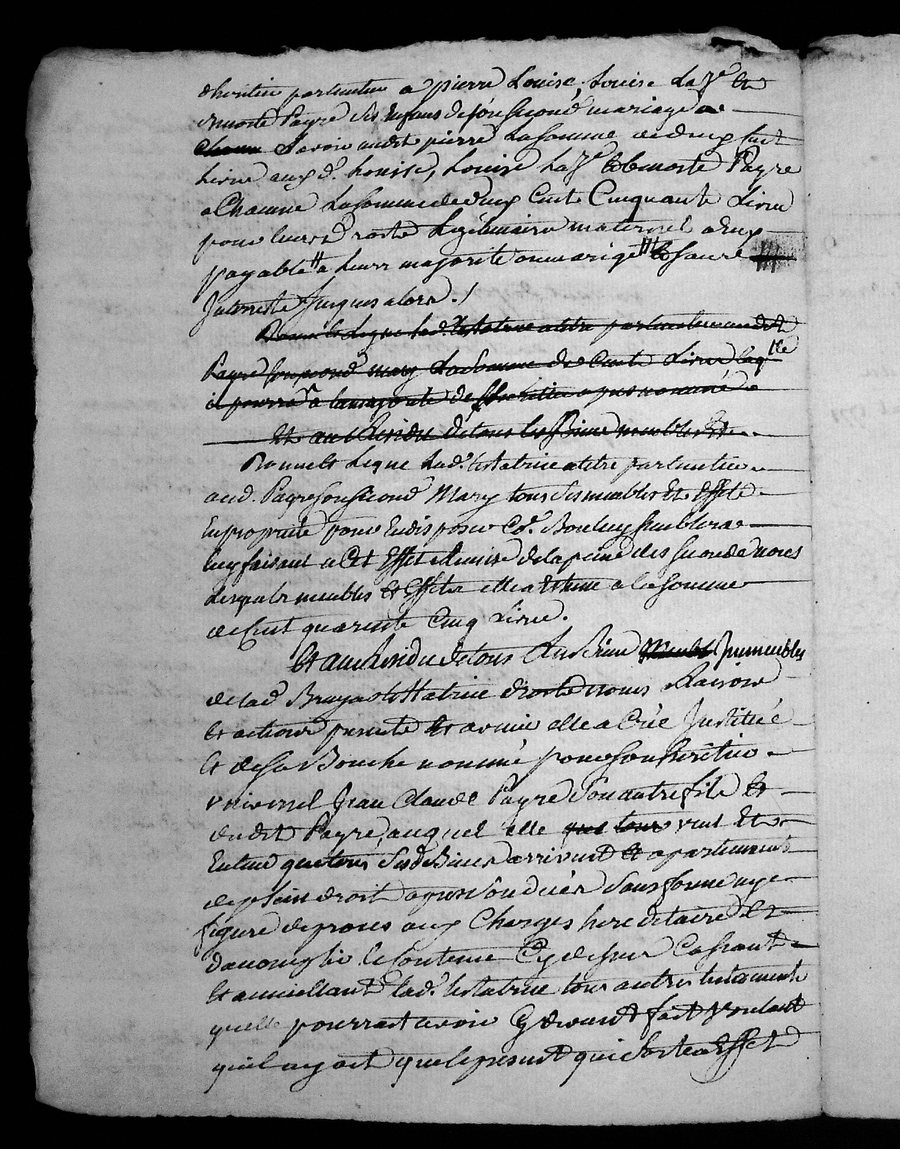 d'heritier particulier a pierre Louise, Louise La Je Et
Benoite Payre Ses Enfans de son second mariage a
chacun Savoir audit pierre La somme de deux cent
Livres aux d. Louise, Louise La Je Et benoite Payre
a Chacune La somme de deux Cent Cinquante Livres
pour leurs droits Legitimaires maternel a Eux
payable a leurs majorité ou mariage
Interest Jusques alors./
Donne et Legue lad. testatrice a titre particulier audit
Payre son second mary La somme de Cent Livres laqlle
il pourra
Et au Residu de tous les Biens meubles Et
Donne et Legue Lad. testatrice a titre particulier
aud. Payre son second Mary tous ses meubles Et Effets
En proprieté pour En disposer Comme Bon luy semblera
luy faisant a Cet Effet Remise de la peine des secondes noces
Lesquels meubles Et Effets elle a Estimé a la somme
de Cent quarente Cinq Livres.
Et au Residu de tous Les Biens Meubles Immeubles
de lad. testatrice droits noms Raisons
Et actions presente Et avenir elle a Crée Institué
Et de sa Bouche nommé pour son heritier
universel Jean Claude Payre Son autre fils Et
dudit Payre, auquel elle que tous veut Et
Entend que tous Sesd. Biens arrivent Et apartiennent
de plein droit apres Son decés Sans forme ny
figure de proces aux Charges hereditaire Et
d'acomplir le Contenu Cy dessus Cassant
Et annullant lad. testatrice tous autres testaments
quelle pourroit avoir Cy devant fait voulant
quil ny ait que le present qui sorte a Effet